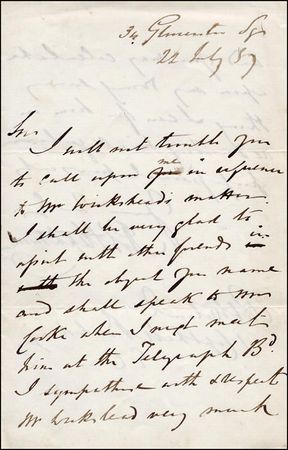 34 Gloucester Sq
22 July 57
Sir
I will not trouble you
to call upon me in reference
to Mr matter.
I shall be very glad to
assist with other friends in
with the object you name
and shall speak to Mr
Cooke when I next meet
him at the Telegraph Bd.
I sympathise with & respect
Mr very much